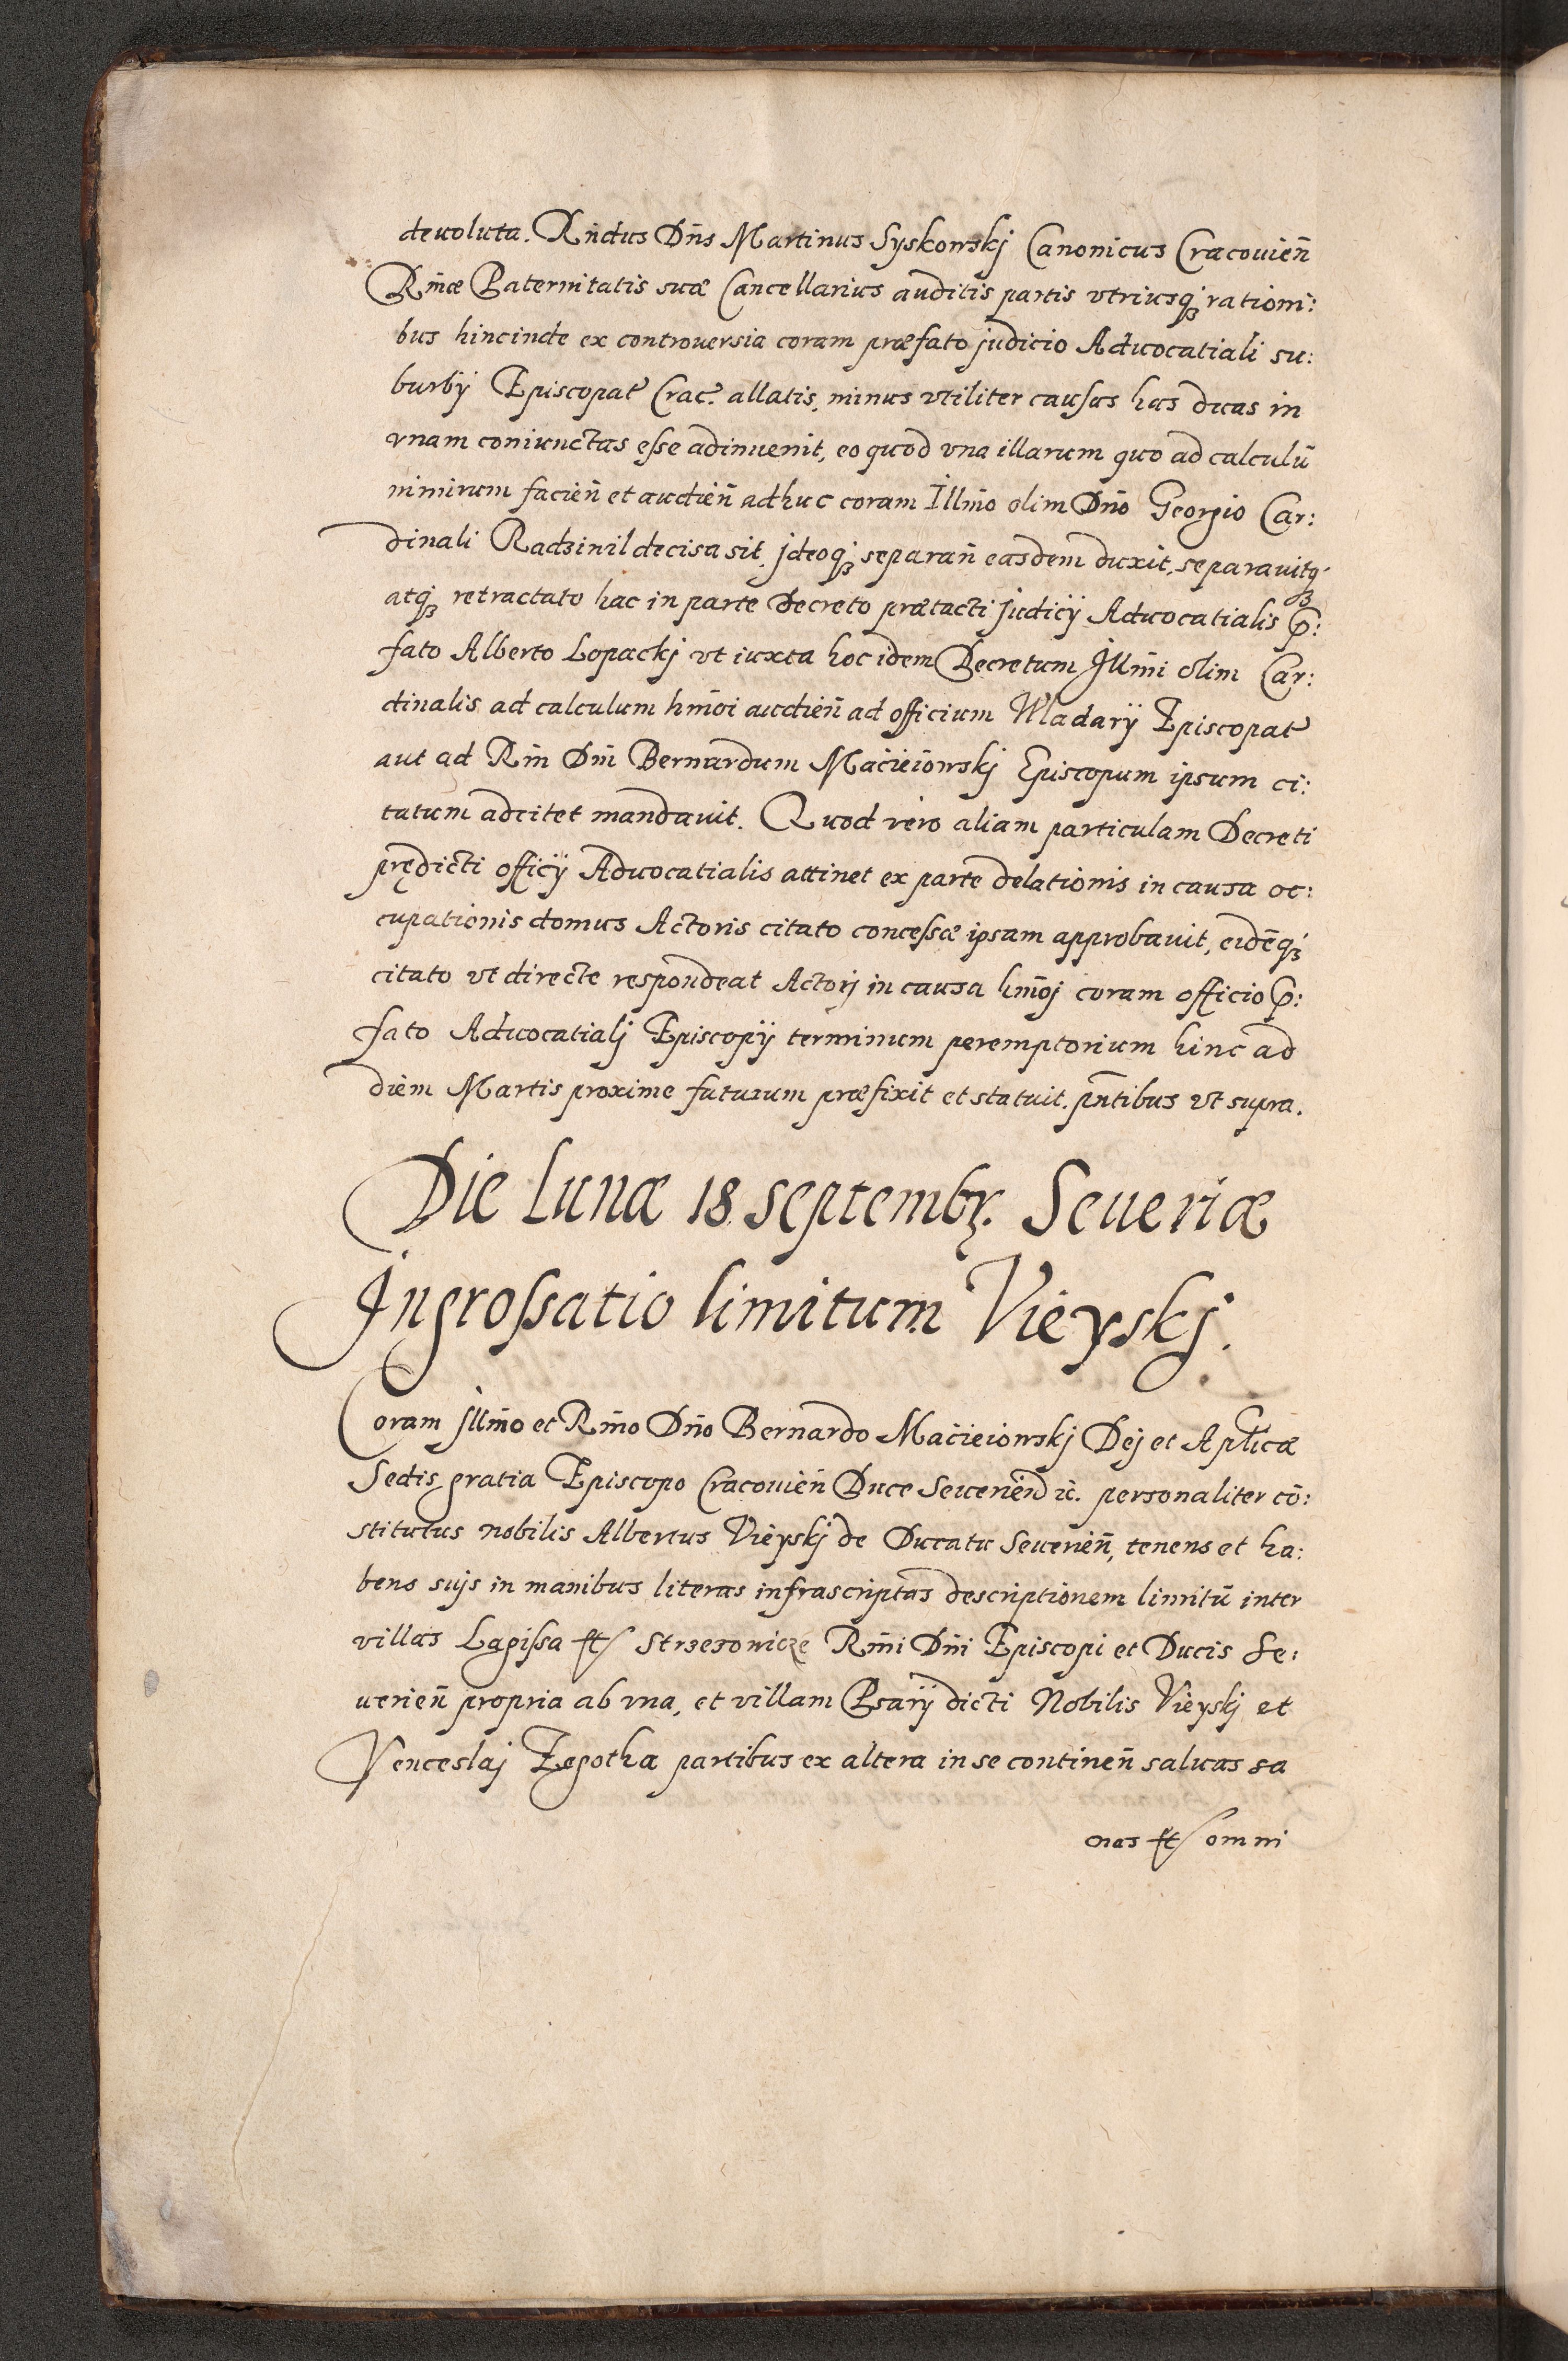 deuoluta. Rn̄dus Dn̄s Martinus Syskowskj Canonicus Cracouien̄
Rm̄æ Paternitatis suæ Cancellarius auditis partis vtriusqꝫ rationi:
bus hincinde ex controuersia coram præfato judicio Aduocatiali su:
burbÿ Episcopat Crac. allatis, minus vtiliter causas has duas in
vnam coniunctas eſse adinuenit, eo quod vna illarum quo ad calculū
nimirum facien̄ et audien̄ adhuc coram Illm̄o olim Dn̄o Georgio Car:
dinali Radziuil decisa sit, jdeoqꝫ separan̄ easdem duxit, separauitqꝫ
atqꝫ retractato hac in parte Decreto prætacti judicÿ Aduocatialis p̄:
fato Alberto Lopackj vt iuxta hoc idem Decretum Jllm̄i olim Car:
dinalis ad calculum hm̄oi audien̄ ad officium Wladarÿ Episcopat
aut ad Rm̄ Dn̄ Bernardum Macieiowskj Episcopum ipsum ci:
tatum adcitet mandauit. Quod vero aliam particulam Decreti
prędicti officÿ Aduocatialis attinet ex parte delationis in causa oc:
cupationis domus Actoris citato conceſsæ ipsam approbauit, eidēqꝫ
citato vt directe respondeat Actorj in causa hm̄oj coram officio p̄:
fato Aduocatialj Episcopÿ terminum peremptorium hinc ad
diem Martis proxime futurum præfixit et statuit. pn̄tibus vt supra.
Die Lunæ 18 septembr. Seueriæ
Jngroſsatio limitum Vieyskj.
Coram Jllm̄o et Rm̄o Dn̄o Bernardo Macieiowskj Dej et Apl̄icæ
Sedis gratia Episcopo Cracouien̄ Duce Seuerien̄ ꝛc. personaliter cō:
stitutus nobilis Albertus Vieyskj de Ducatu Seuerien̄, tenens et ha:
bens suÿs in manibus literas infrascriptas descriptionem limitū inter
villas Lagiſsa et Strzezowicze Rm̄i Dn̄i Episcopi et Ducis Se:
uerien̄ propria ab vna, et villam Psarÿ dicti Nobilis Vieyskj et
Venceslaj Zegotha partibus ex altera in se continen̄ saluas sa
nas et omni